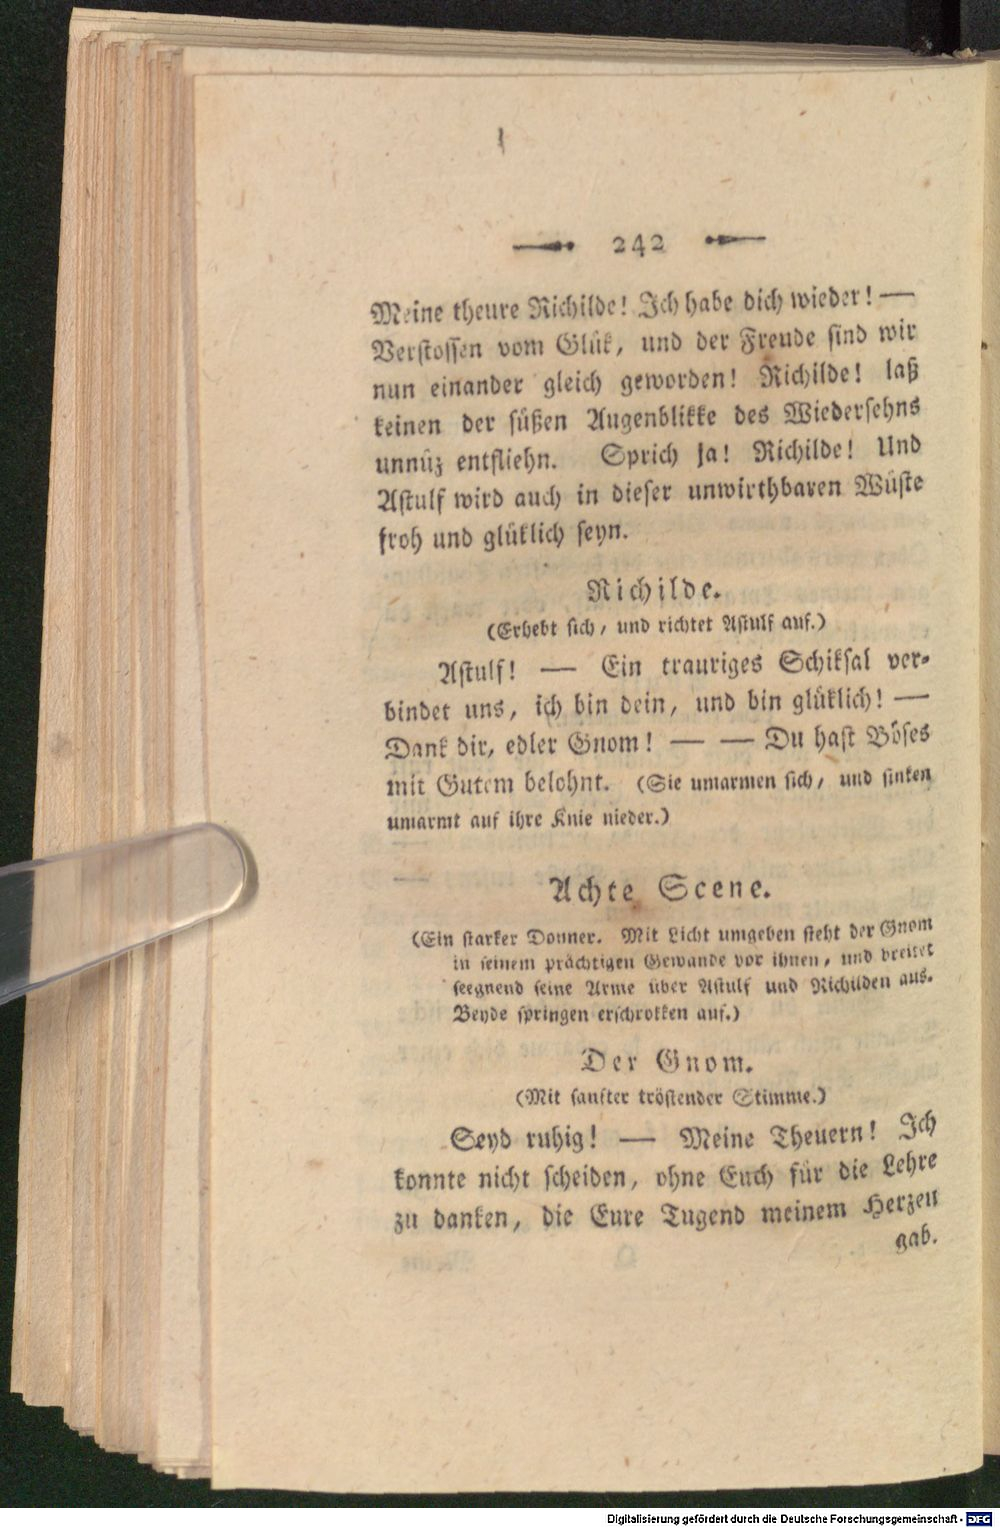 242
Meine theure Richilde! Ich habe dich wieder! —
Verstossen vom Glük, und der Freude sind wir
nun einander gleich geworden! Richilde! laß
keinen der süßen Augenblikke des Wiedersehns
unnüz entfliehn. Sprich ja! Richilde! Und
Astulf wird auch in dieser unwirthbaren Wüste
froh und glüklich seyn.
Richilde.
(Erhebt sich, und richtet Astulf auf.)
Astulf! — Ein trauriges Schiksal ver-
bindet uns, ich bin dein, und bin glüklich! —
Dank dir, edler Gnom! — — Du hast Böses
mit Gutem belohnt. (Sie umarmen sich, und sinken
umarmt auf ihre Knie nieder.)
Achte Scene.
(Ein starker Donner. Mit Licht umgeben steht der Gnom
in seinem prächtigen Gewande vor ihnen, und breitet
seegnend seine Arme über Astulf und Richilden aus.
Beyde springen erschrokken auf.)
Der Gnom.
(Mit sanfter tröstender Stimme.)
Seyd ruhig! — Meine Theuern! Ich
konnte nicht scheiden, ohne Euch für die Lehre
zu danken, die Eure Tugend meinem Herzen
gab.
Digitalisierung gefördert durch die Deutsche Forschungsgemeinschaft - DFG